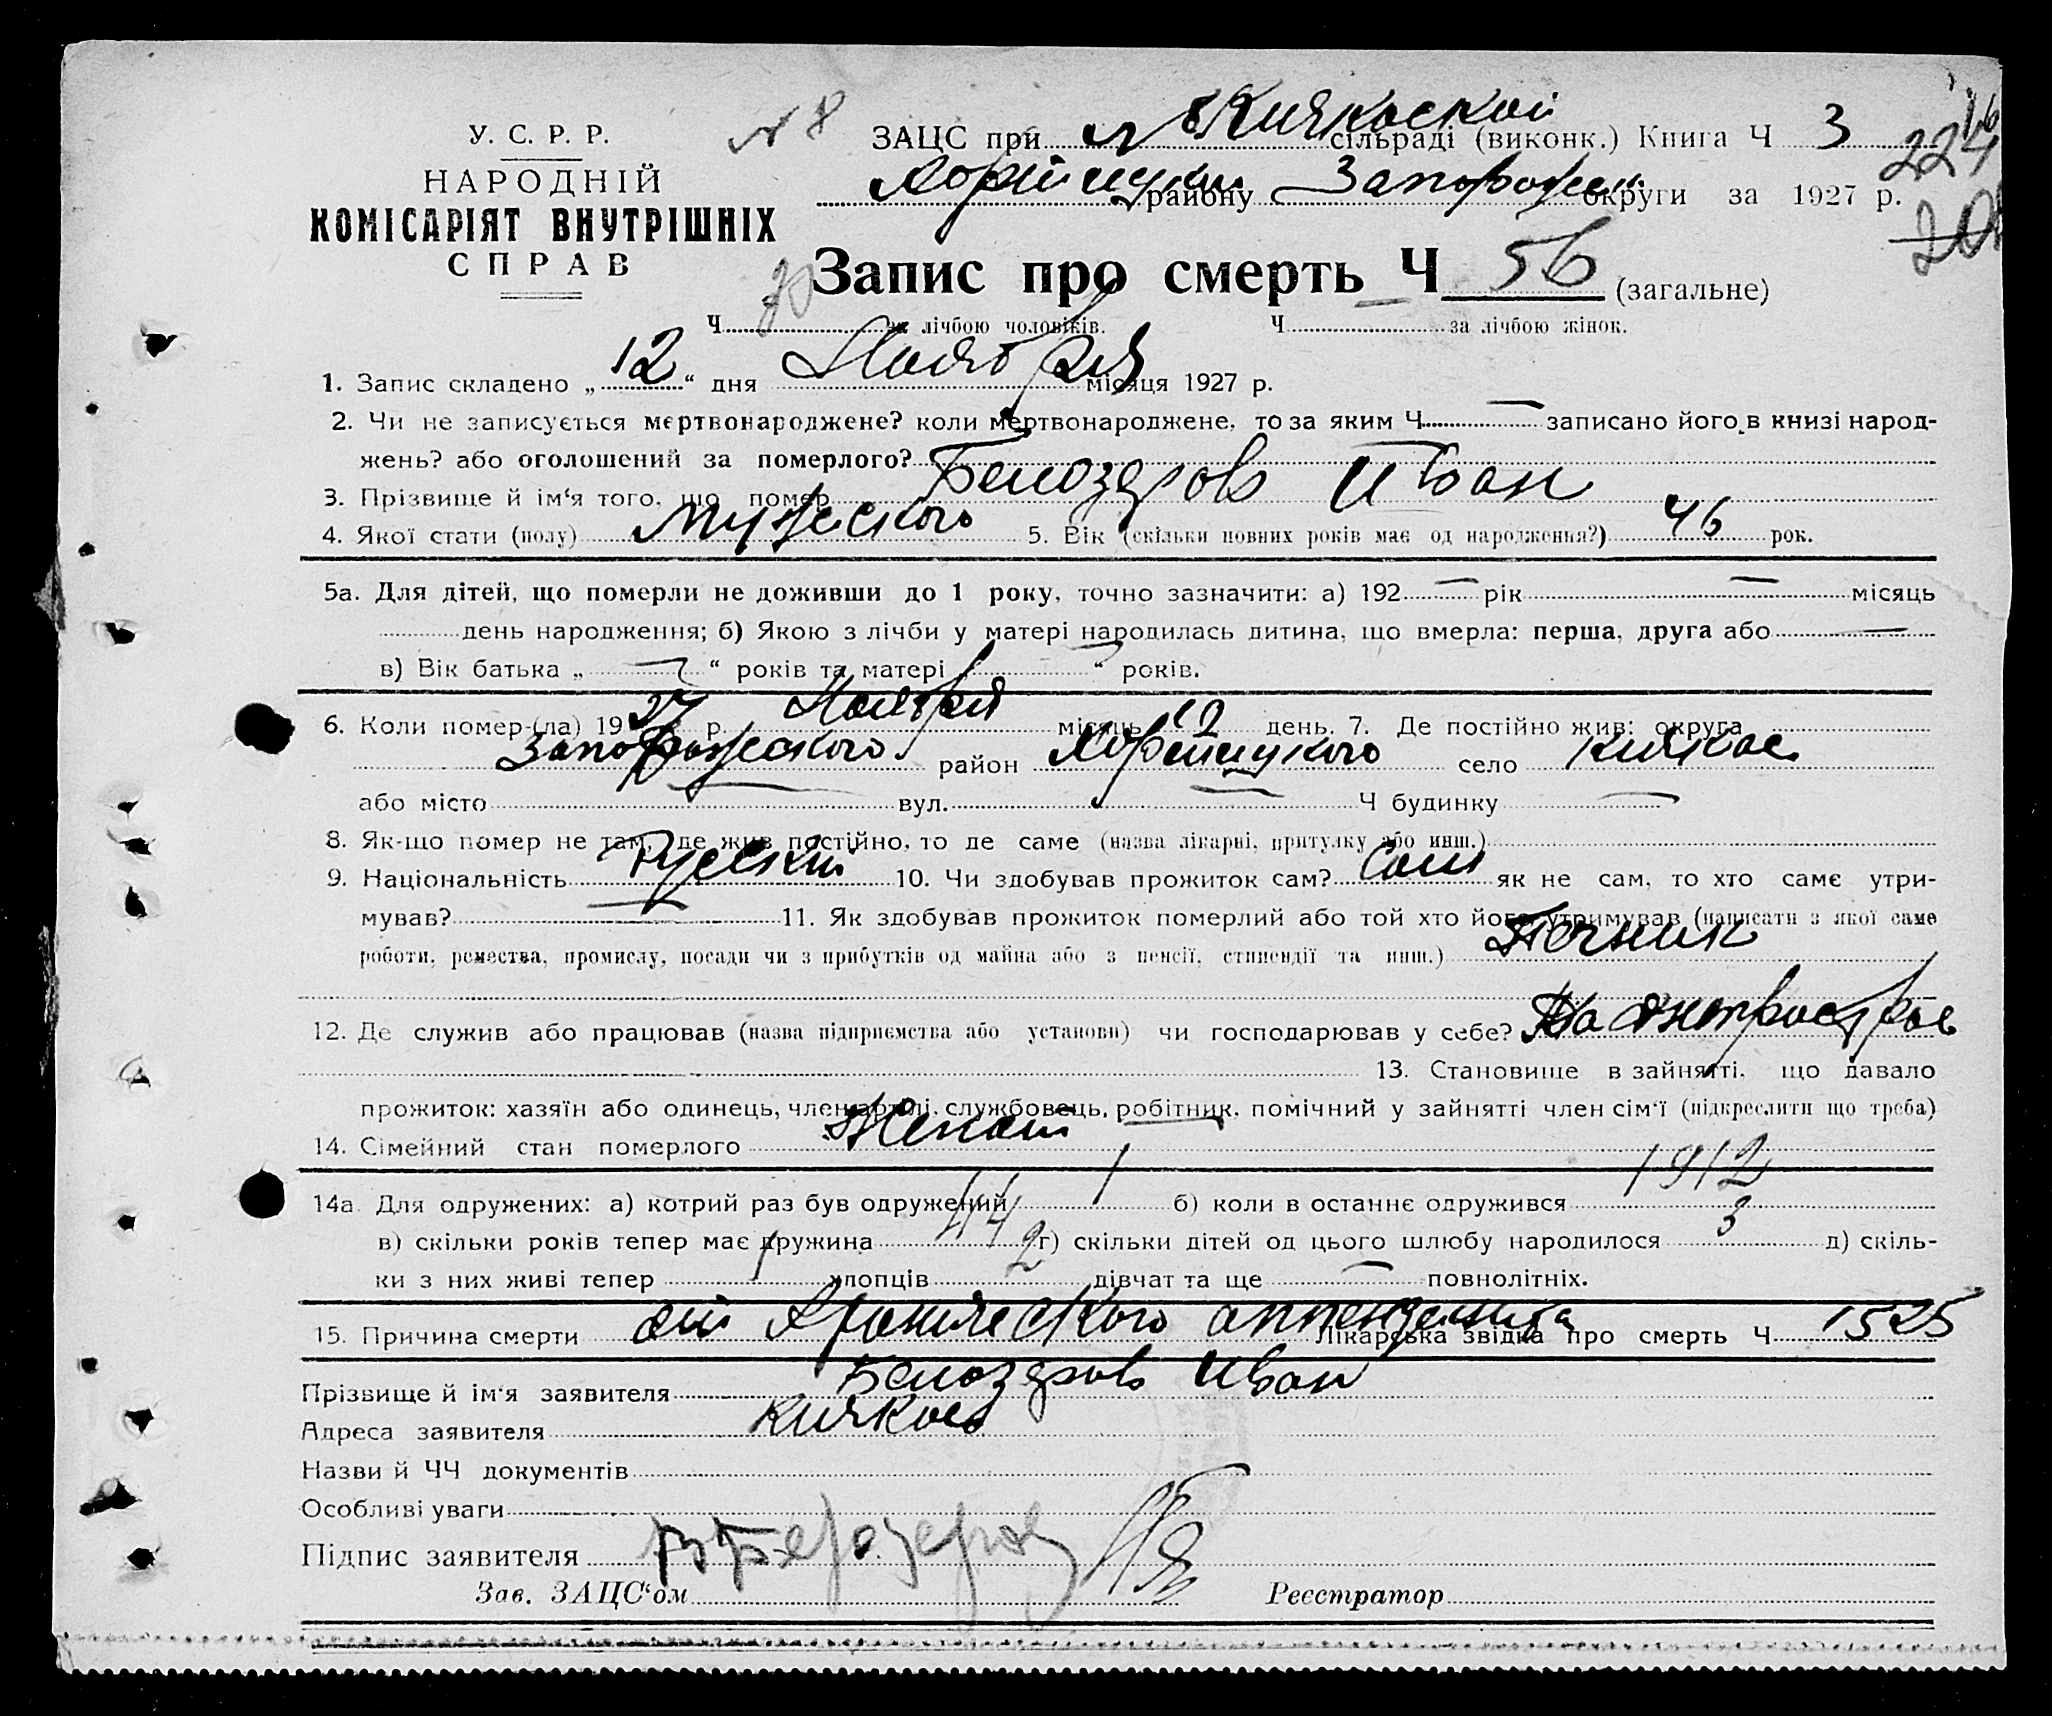 У. С. Р. Р.
НАРОДНІЙ
КОМІСАРІЯТ ВНУТРІШНІХ
СПРАВ
N 8
ЗАЦС при Кичкаской сільраді (виконк.) Книга Ч 3
224
Хортицьк. району Запорожск. округи за 1927 р.
Запис про смерть Ч 56 (загальне)
Ч за лічбою чоловіків. Ч за лічбою жінок.
1. Запис складено „ 12 “ дня Ноября місяця 1927 р.
2. Чи не записується мертвонароджене? коли мертвонароджене, то за яким Ч — записано його в книзі народ-
жень? або оголошений за померлого?
3. Прізвище й ім‘я того, що помер Белозеров Иван
4. Якої стати (полу) Мужеского 5. Вік (скільки повних років має од народження?) 46 рок.
5а. Для дітей, що померли не доживши до 1 року, точно зазначити: а) 192 — рік — місяць
день народження; б) Якою з лічби у матері народилась дитина, що вмерла: перша, друга або —
в) Вік батька „ — “ років та матері „ “ років.
6. Коли помер-(ла) 1927 р. Ноября місяць 12 день. 7. Де постійно жив: округа
Запорожеского район Хортицкого село Кичкас
або місто — вул. — Ч будинку —
8. Як-що помер не там, де жив постійно, то де саме (назва лікарні, притулку або инш.)
9. Національність Русский 10. Чи здобував прожиток сам? Сам як не сам, то хто саме утри-
мував? — 11. Як здобував прожиток померлий або той хто його утримував (написати з якої саме
роботи, ремества, промислу, посади чи з прибутків од майна або з пенсії, стипендії та инш.) Печник
12. Де служив або працював (назва підприємства або установи) чи господарював у себе? На Днепрострое
13. Становище в зайнятті, що давало
прожиток: хазяїн або одинець, член артілі, службовець, робітник, помічний у зайнятті член сім‘ї (підкреслити що треба)
14. Сімейний стан померлого Женат
14а. Для одружених: а) котрий раз був одружений 1 б) коли в останнє одружився 1912
в) скільки років тепер має дружина 44 г) скільки дітей од цього шлюбу народилося 3 д) скіль-
ки з них живі тепер 1 хлопців 2 дівчат та ще — повнолітніх.
15. Причина смерти от хронического аппендицита Лікарська звідка про смерть Ч 1525
Прізвище й ім‘я заявителя Белозеров Иван
Адреса заявителя Кичкас
Назви й ЧЧ документів
Особливі уваги
Підпис заявителя
Зав. ЗАЦС‘ом Реєстратор